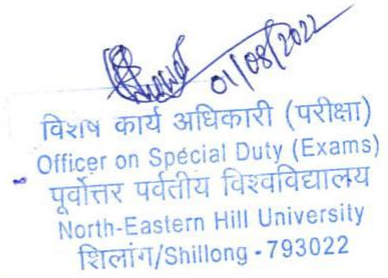 01/08/2022
विशेष कार्य अधिकारी (परीक्षा)
Officer on Special Duty (Exams)
पूर्वोत्तर पर्वतीय विश्वविद्यालय
North-Eastern Hill University
शिलांग/Shillong - 793022